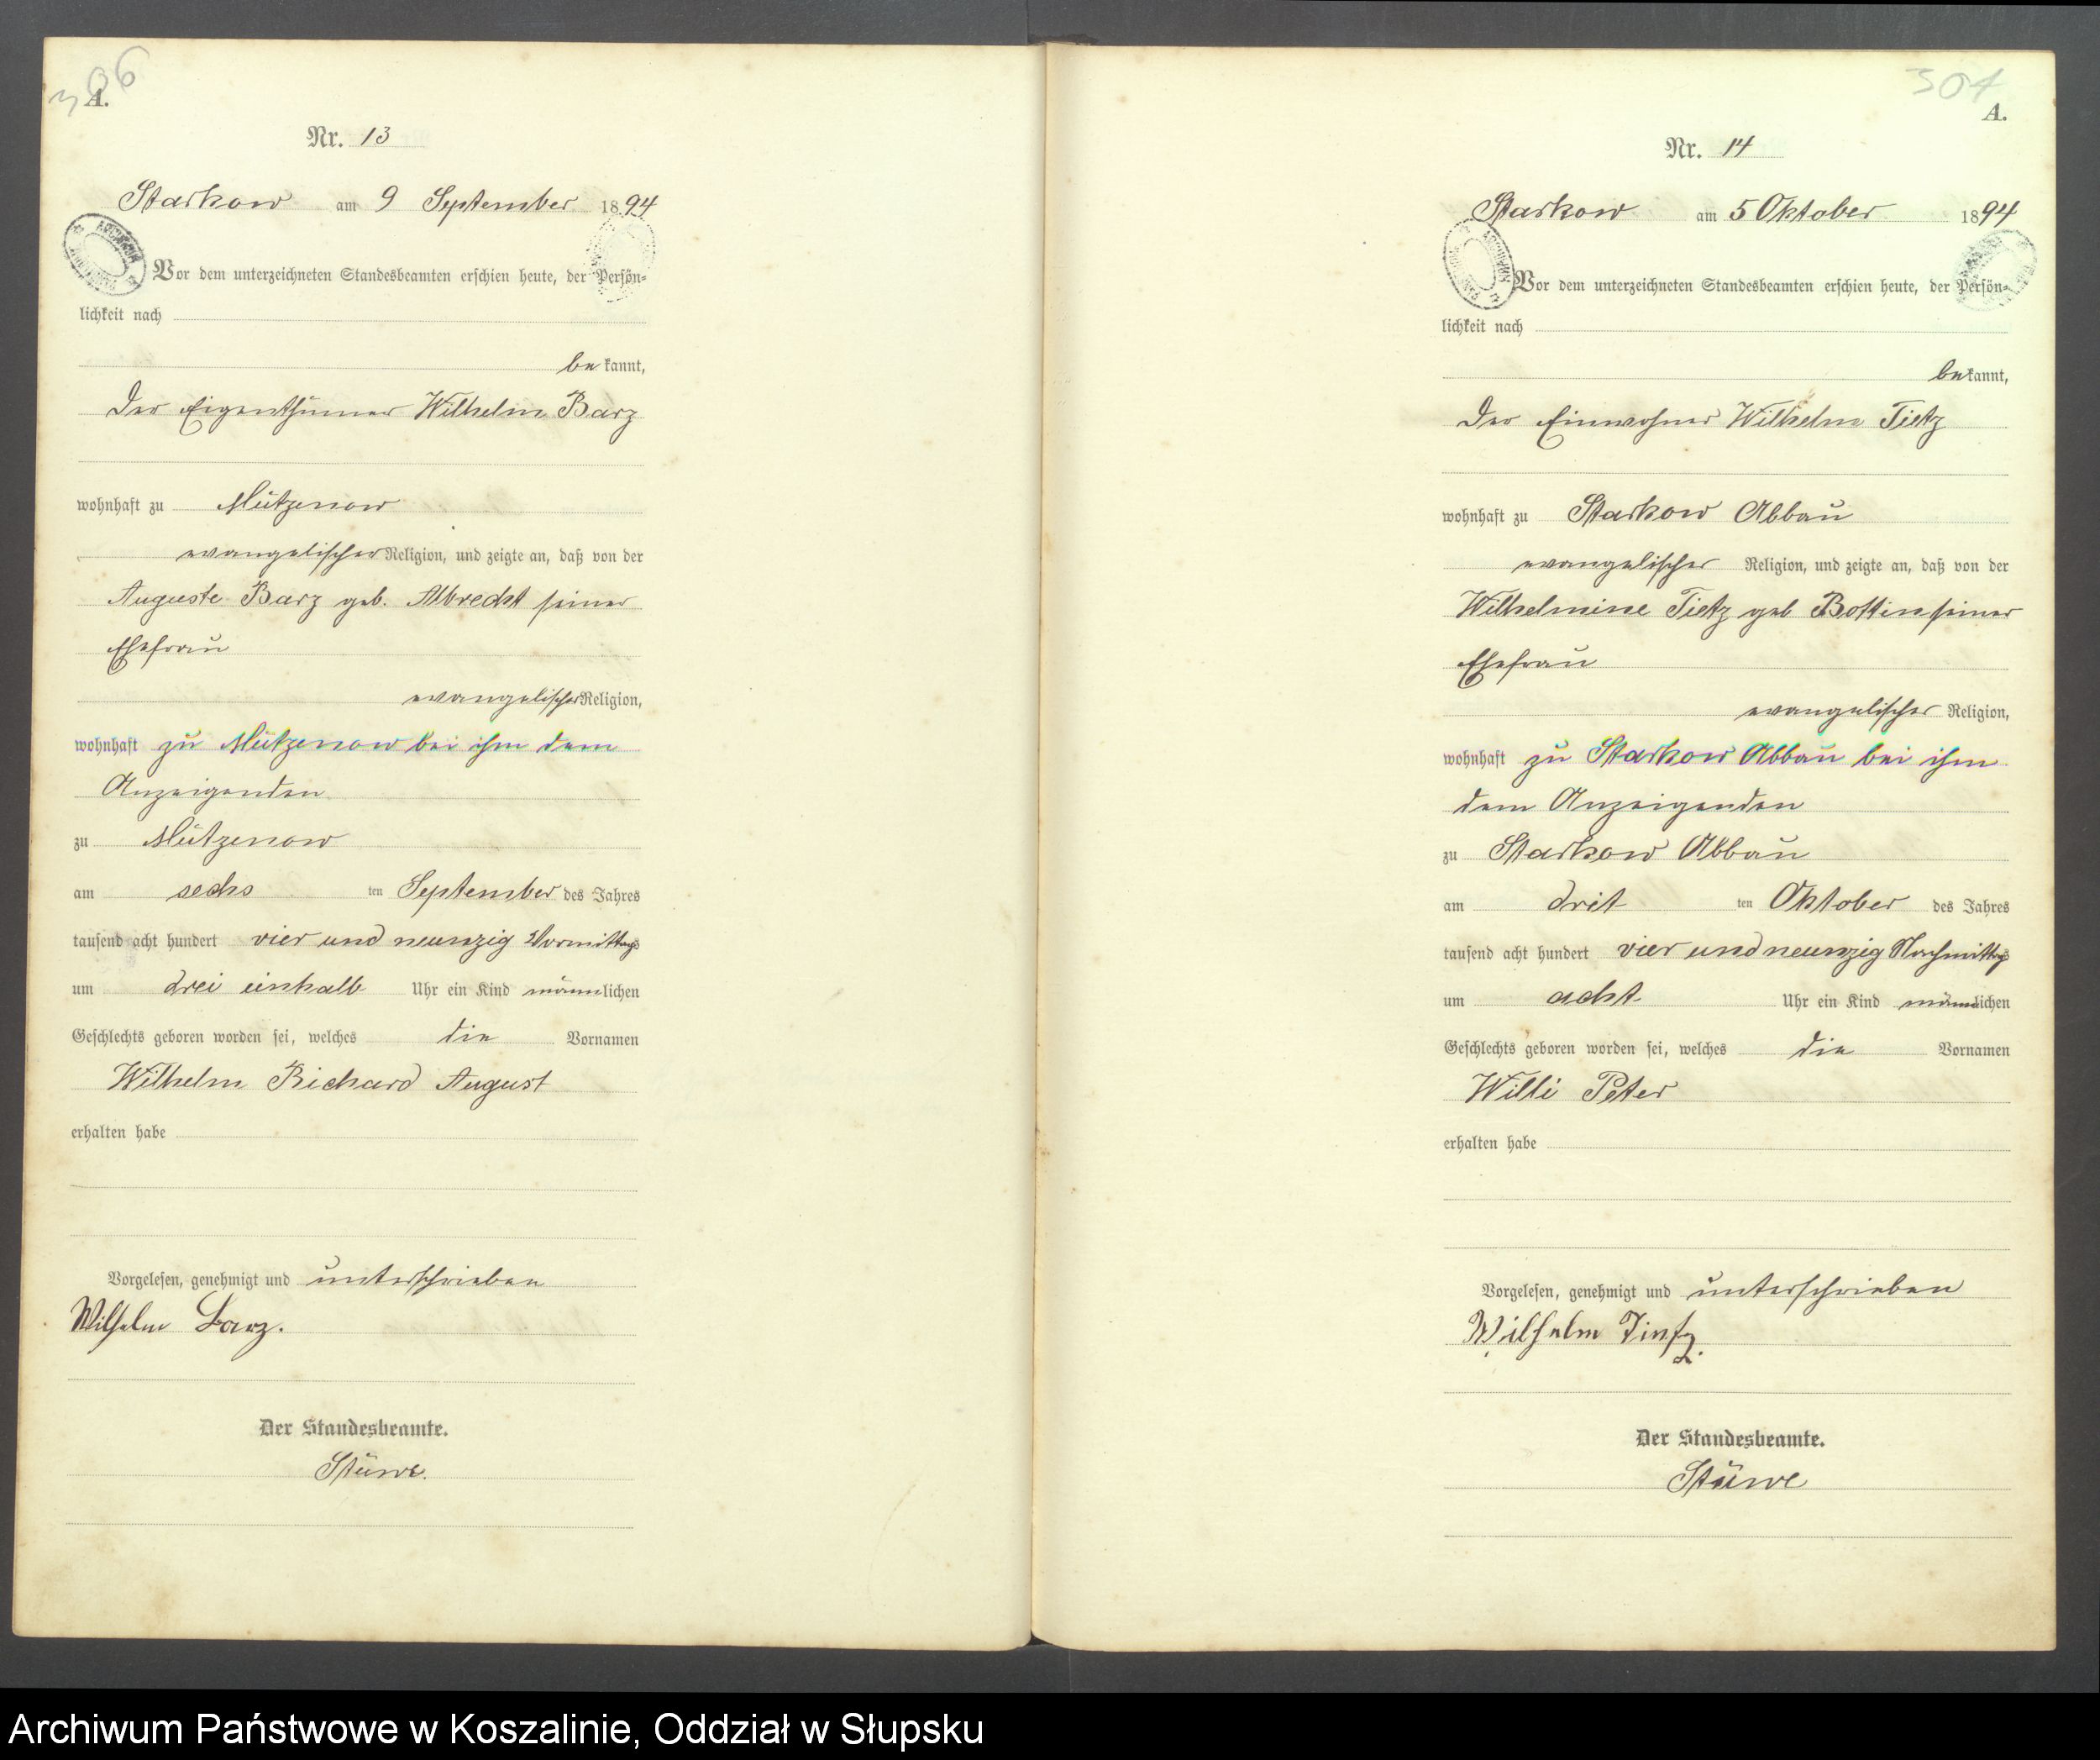 306
A.
Nr. 13
Starkow am 9 September 1894
Vor dem unterzeichneten Standesbeamten erschien heute, der Persön-
lichkeit nach
be kannt,
der Eigenthümer Wilhelm Barz
wohnhaft zu Mützenow
evangelischer Religion, und zeigte an, daß von der
Auguste Barz geb. Albrecht seiner
Ehefrau
evangelischer Religion,
wohnhaft zu Mützenow bei ihm dem
Anzeigenden
zu Mützenow
am sechs ten September des Jahres
tausend acht hundert vier und neunzig Vormittags
um drei einhalb Uhr ein Kind männlichen
Geschlechts geboren worden sei, welches die Vornamen
Wilhelm Richard August
erhalten habe
Vorgelesen, genehmigt und unterschrieben
Wilhelm Barz.
Der Standesbeamte.
Stüwe.
307
A.
Nr. 14
Starkow am 5 Oktober 1894
Vor dem unterzeichneten Standesbeamten erschien heute, der Persön-
lichkeit nach
bekannt,
der Einwohner Wilhelm Tietz
wohnhaft zu Starkow Abbau
evangelischer Religion, und zeigte an, daß von der
Wilhelmine Tietz geb Bottin seiner
Ehefrau
evangelischer Religion,
wohnhaft zu Starkow Abbau bei ihm
dem Anzeigenden
zu Starkow Abbau
am drit ten Oktober des Jahres
tausend acht hundert vier und neunzig Nachmittags
um acht Uhr ein Kind männlichen
Geschlechts geboren worden sei, welches die Vornamen
Willi Peter
erhalten habe
Vorgelesen, genehmigt und unterschrieben
Wilhelm Tietz.
Der Standesbeamte.
Stüwe
Archiwum Państwowe w Koszalinie, Oddział w Słupsku